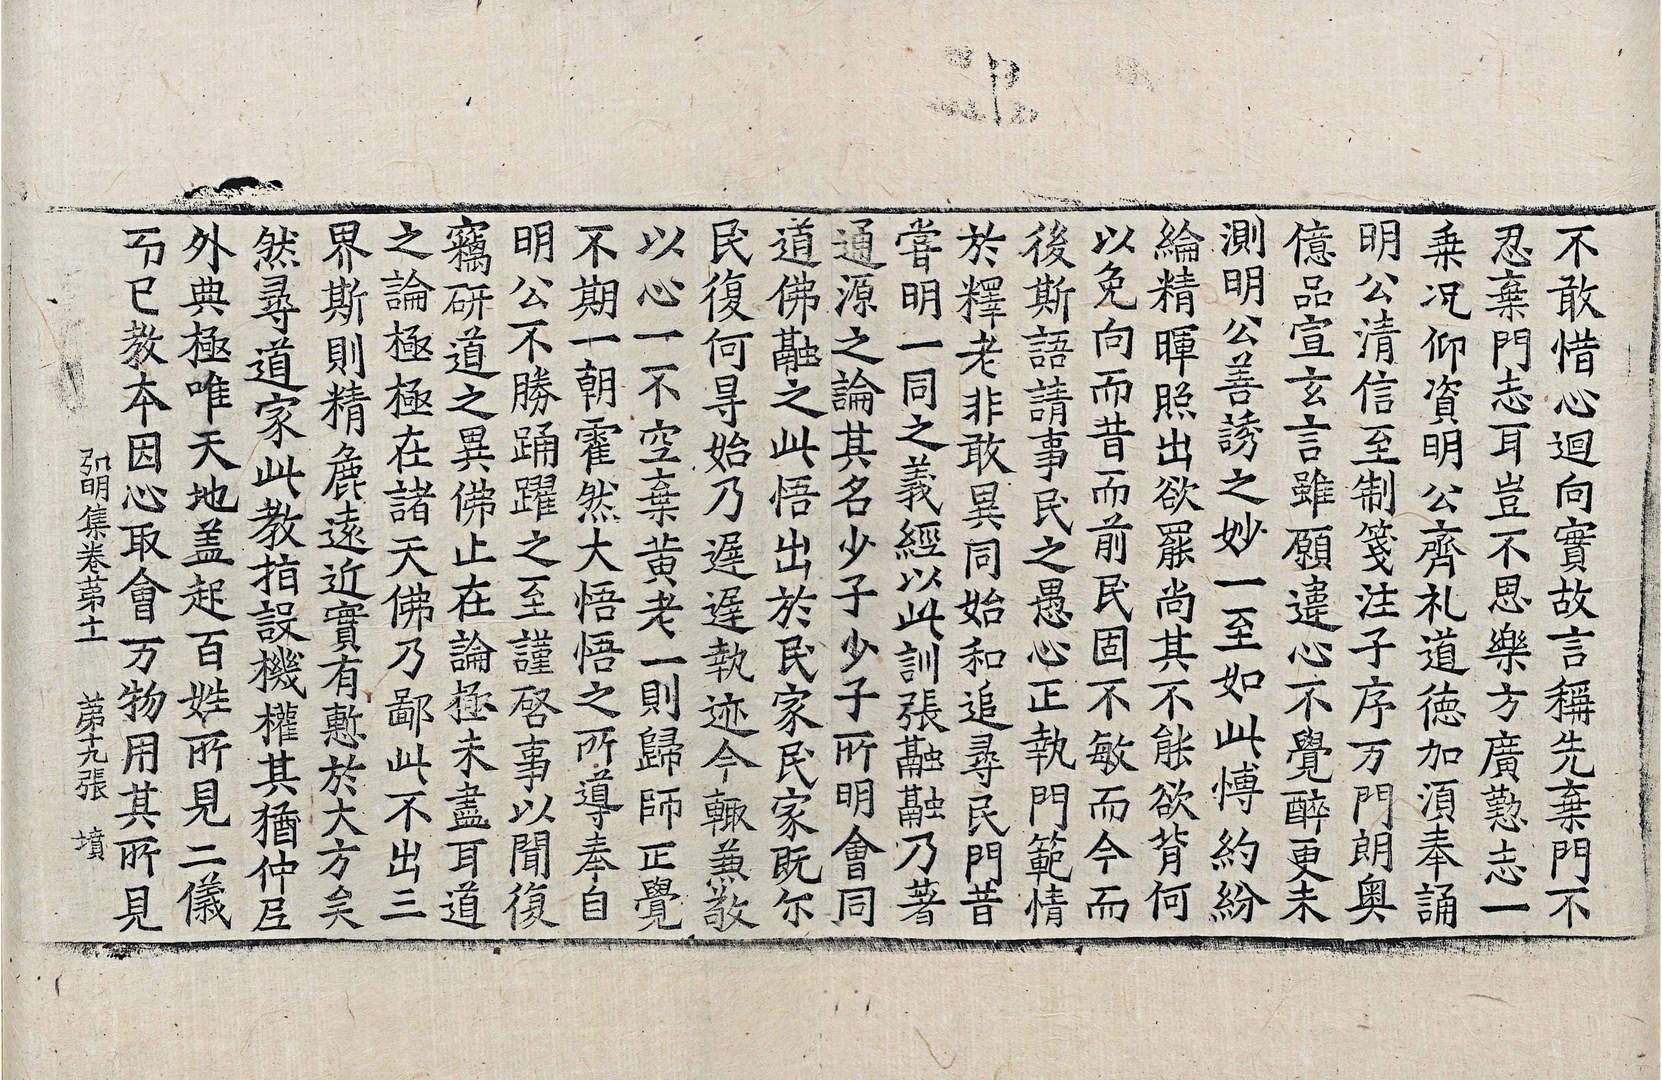 不敢惜心迴向實故言稱先棄門不
忍棄門志耳豈不思樂方廣懃志一
乘况仰資明公齊礼道德加湏奉誦
明公清信至制箋注子序万門朗奧
億品宣玄言雖願違心不覺醉更未
測明公善誘之妙一至如此愽約紛
綸精暉照出欲罷尚其不能欲背何
以免向而昔而前民固不敏而今而
後斯語請事民之愚心正執門範情
於釋老非敢異同始和追尋民門昔
嘗明一同之義經以此訓張融融乃著
通源之論其名少子少子所明會同
道佛融之此悟出於民家民家既尒
民復何㝵始乃遲遲執迹今輙兼敬
以心一一不空棄黄老一則歸師正覺
不期一朝霍然大悟悟之所導奉自
明公不勝踊躍之至謹啓事以聞復
竊研道之異佛止在論極未盡耳道
之論極極在諸天佛乃鄙此不出三
界斯則精麁遠近實有慙於大方矣
然尋道家此教指設機權其猶仲𡰱
外典極唯天地盖起百姓所見二儀
而已教本因心取會万物用其所見
弘明集卷苐十一 苐十九張 墳